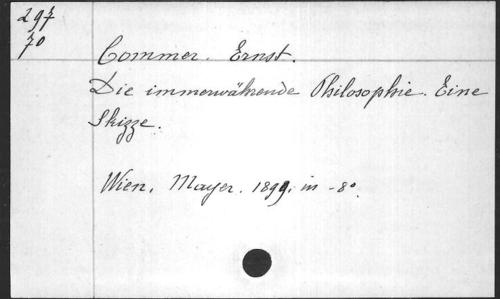 297
70
Commer. Ernst.
Die immerwährende Philosophie. Eine
Skizze.
Wien, Mayer. 1899. in -8°.